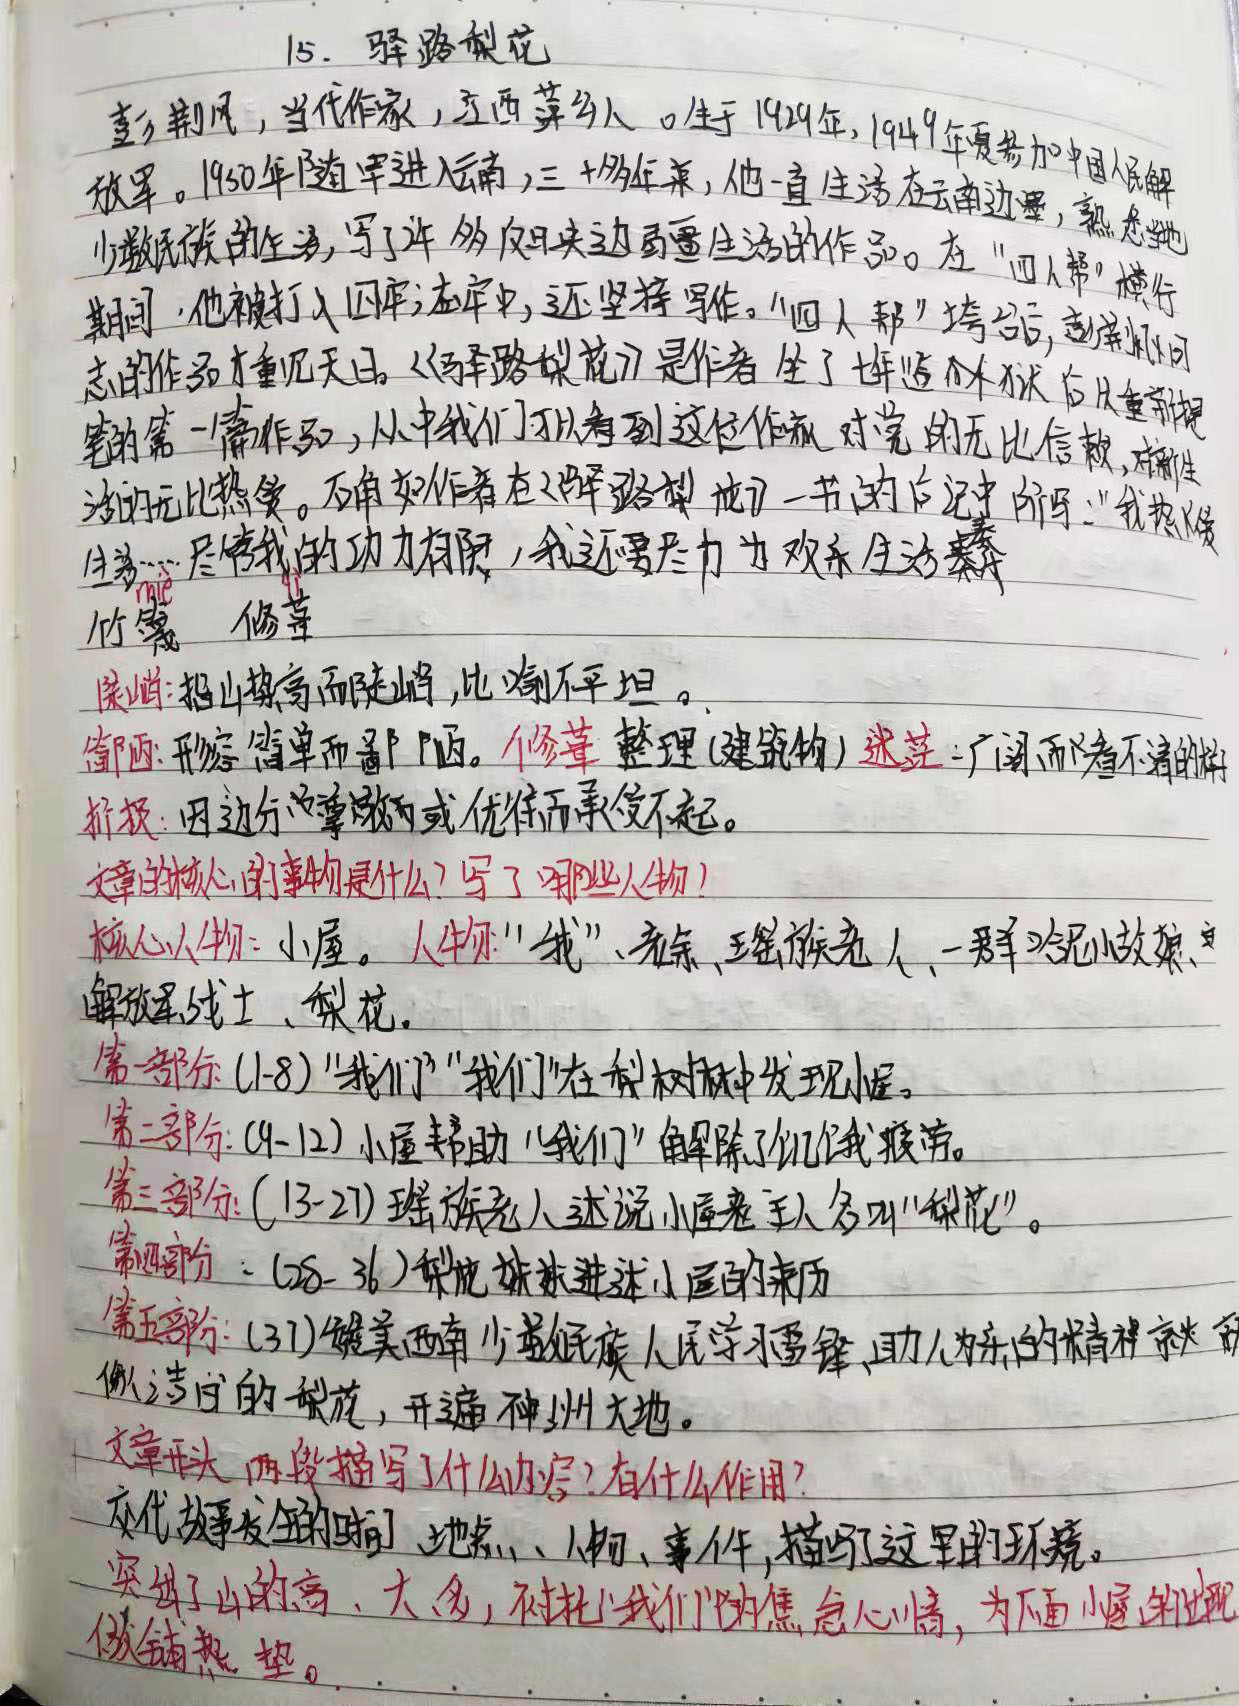 15. 驿路梨花
彭荆风，当代作家，江西萍乡人。生于1929年，1949年夏参加中国人民解
放军。1950年随军进入云南，三十多年来，他一直生活在云南边疆，熟悉当地
少数民族的生活，写了许多反映边疆生活的作品。在"四人帮"横行
期间，他被打入囚牢；在牢中，还坚持写作。"四人帮"垮台后，彭荆风同
志的作品才重见天日。《驿路梨花》是作者坐了七年监狱后重新提
笔的第一篇作品，从中我们可以看到这位作家对党的无比信赖，对新生
活的无比热爱。正如作者在《驿路梨花》一书的后记中所写："我热爱
生活……尽管我的功力有限，我还要尽力为欢乐生活奏
miè qì
竹篾 修葺
陡峭：指山势高而陡峭，比喻不平坦。
简陋：形容简单而鄙陋。修葺 整理（建筑物）迷茫：广阔而看不清的样
折损：因过分的尊敬或优待而承受不起。
文章的核心的事物是什么？写了哪些人物？
核心人物：小屋。 人物："我"、老余、瑶族老人、一群哈尼小故娘、
解放军战士、梨花。
第一部分：(1-8)"我们""我们"在梨树林中发现小屋。
第二部分：(9-12)小屋帮助"我们"解除了饥饿疲劳。
第三部分：(13-27)瑶族老人述说小屋主人名叫"梨花"。
第四部分：(28-36)梨花妹妹讲述小屋的来历
第五部分：(37)赞美西南少数民族人民学习雷锋、助人为乐的精神就
像洁白的梨花，开遍神州大地。
文章开头两段描写了什么内容？有什么作用？
交代故事发生的时间、地点、人物、事件，描写了这里的环境。
突出了山的高、大、多，衬托"我们"的焦急心情，为下面小屋的出现
做铺垫。